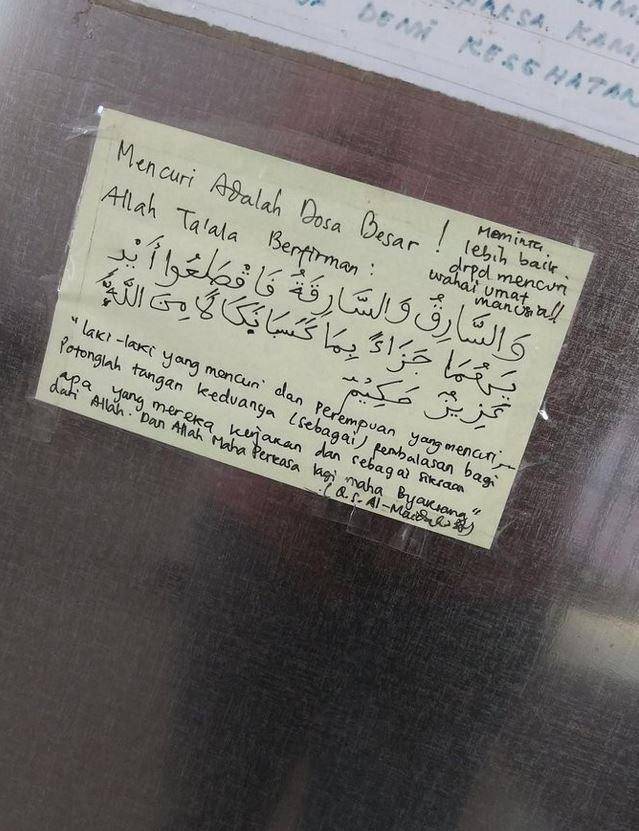 DEMI KESEHATAN
Mencuri Adalah Dosa Besar !
Allah Ta'ala Berfirman :
Meminta
lebih baik
drpd mencuri
wahai umat
manusia!!
وَالسَّارِقُ وَالسَّارِقَةُ فَاقْطَعُوا أَيْدِ
يَهُمَا جَزَاءً بِمَا كَسَبَا نَكَالًا مِنَ اللَّهِ
عَزِيزٌ حَكِيمٌ
"laki-laki yang mencuri dan perempuan yang mencuri,
Potonglah tangan keduanya (sebagai) pembalasan bagi
apa yang mereka kerjakan dan sebagai siksaan
dari Allah. Dan Allah Maha Perkasa lagi maha Bijaksana"
(Q.S. Al-Maidah: 38)